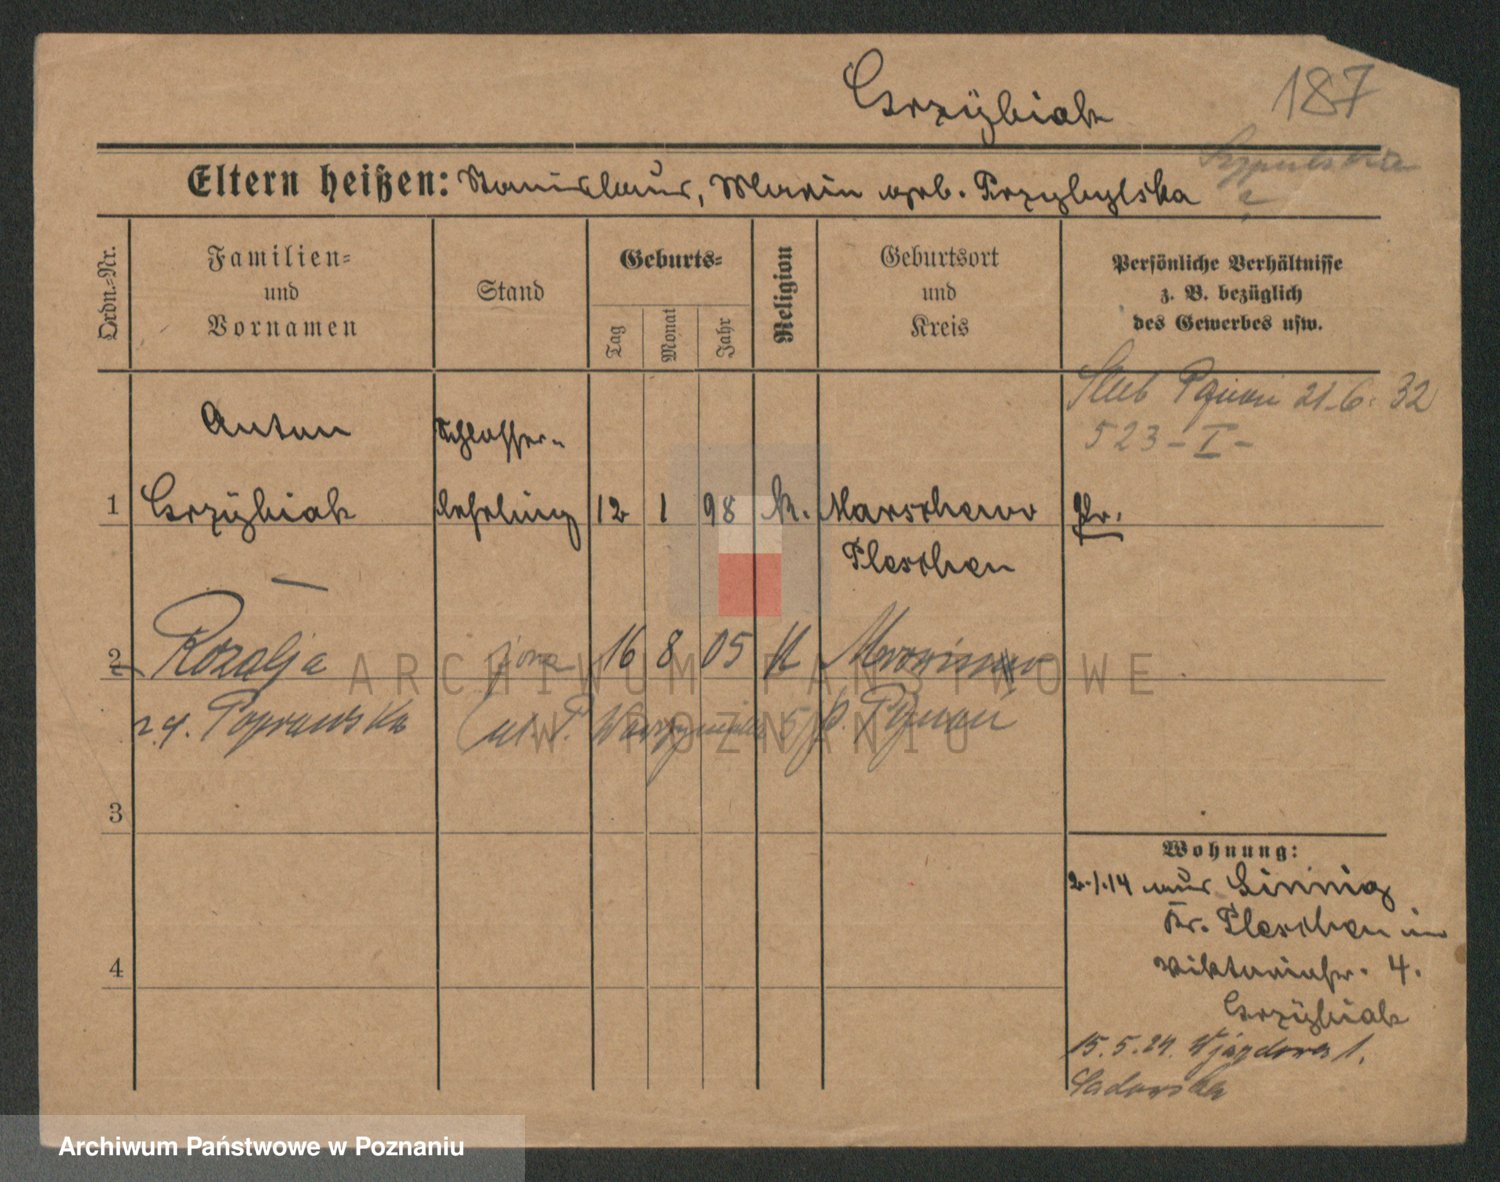 Grzÿbiak
187
Eltern heißen: Stanislaus, Maria geb. Przybylska
?
Ordn.-Nr.
Familien-
und
Vornamen
Stand
Geburts-
Tag
Monat
Jahr
Religion
Geburtsort
und
Kreis
Persönliche Verhältnisse
z. B. bezüglich
des Gewerbes usw.
Ślub Poznań 21.6.32
523-I-
Anton
Schlosser-
1 Grzÿbiak lehrling 12 1 98 k. Marschewo Pr.
Pleschen
2 Rozalja żona 16 8 05 k
z d. Poprawska ul. P. Wawrzyniaka 5 p. Poznań
3
4
Wohnung:
2.1.14 aus
Kr. Pleschen in
Viktoriastr. 4.
Grzÿbiak
15.5.24. Wjazdowa 1.
Sadowska
ARCHIWUM PAŃSTWOWE
W POZNANIU
Archiwum Państwowe w Poznaniu